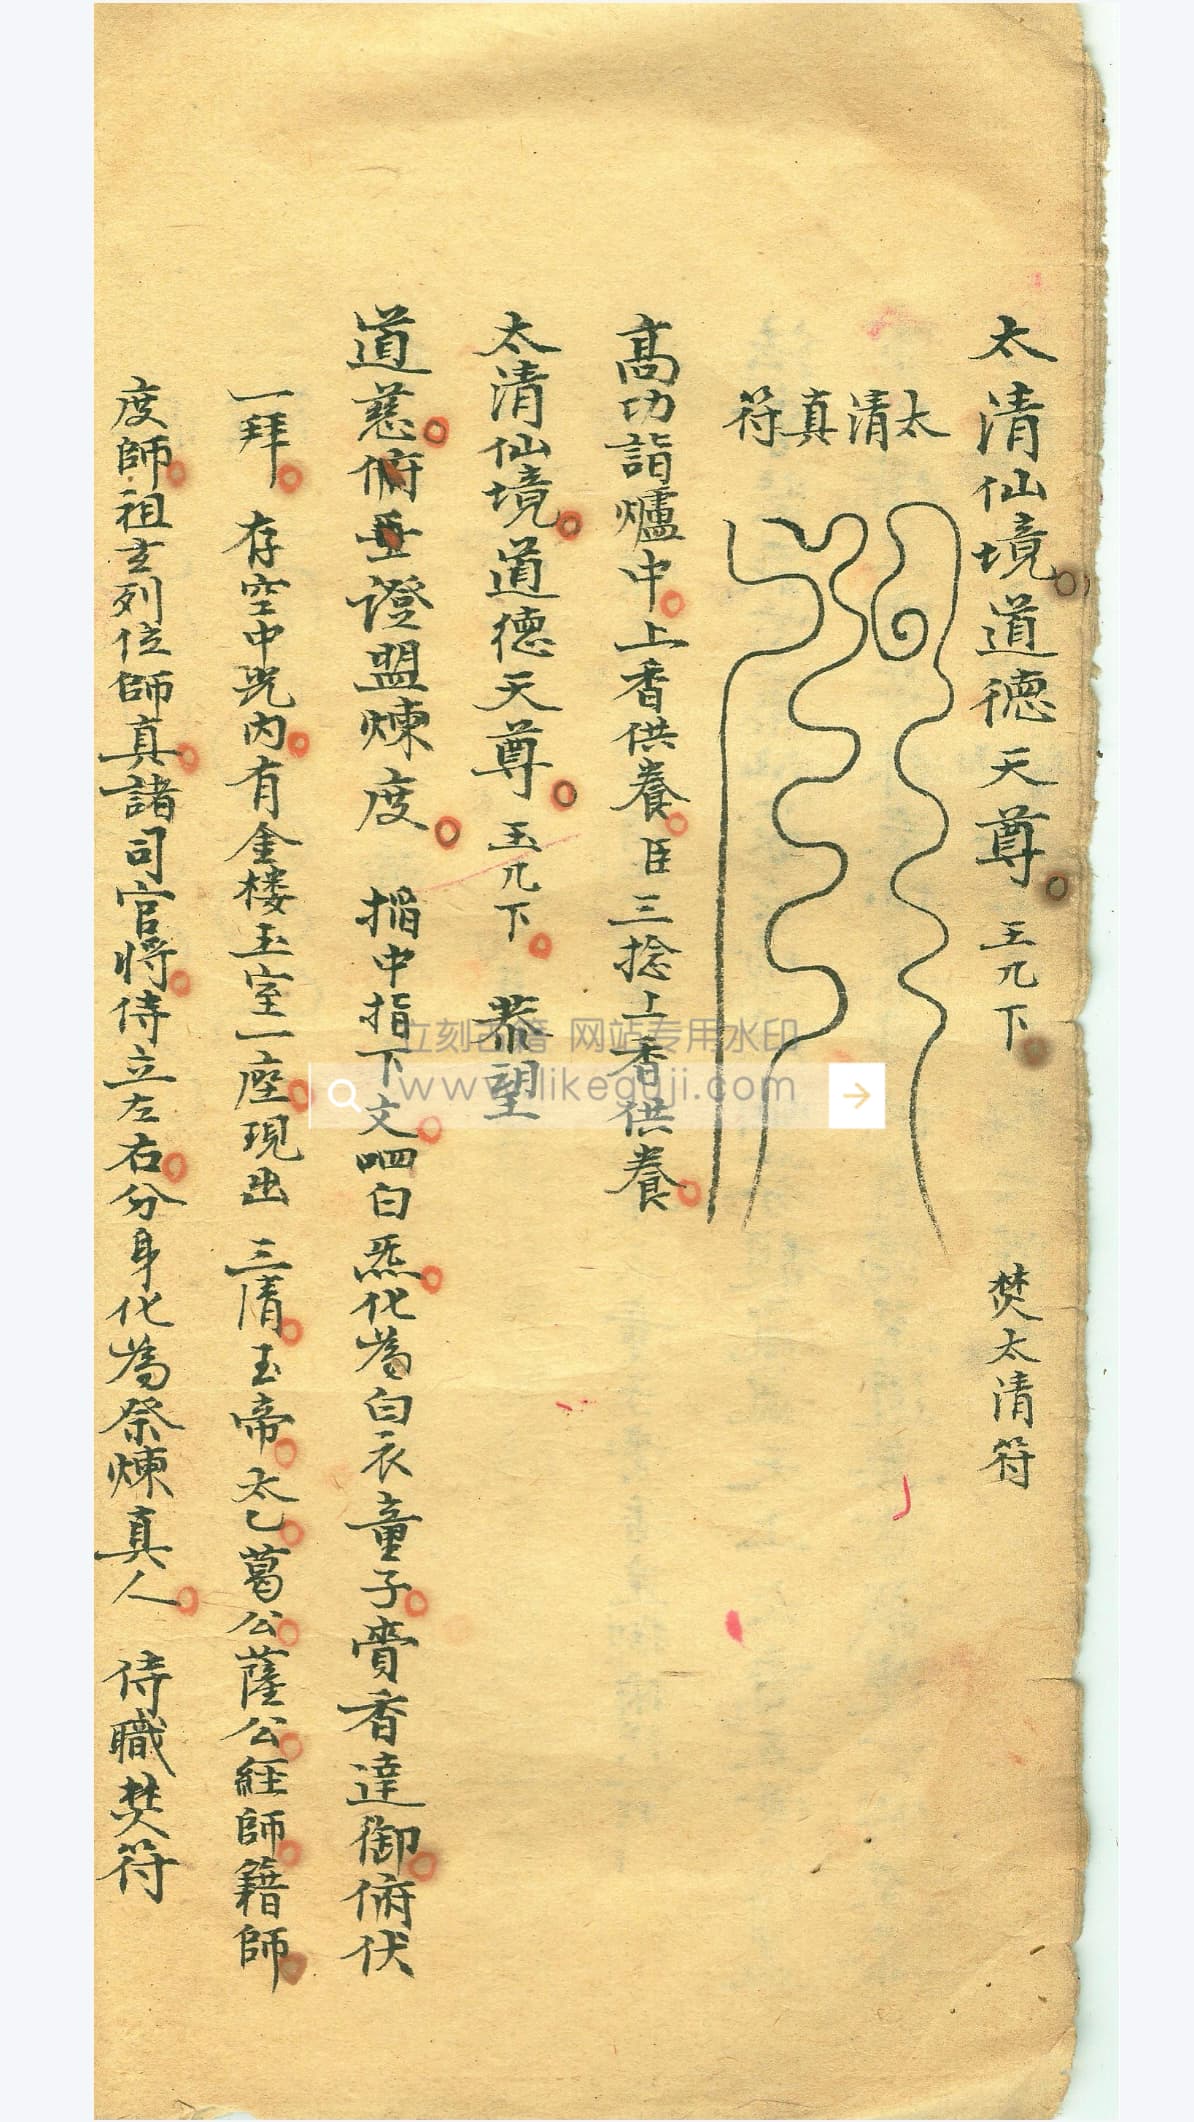 太清仙境道德天尊 玉几下 焚太清符
太清真符
高功詣爐中上香供養臣三捻上香供養
太清仙境道德天尊 玉几下 恭望
道慈俯垂證盟煉度 掐中指下文呬白炁化為白衣童子賫香達御俯伏
一拜 存空中咒内有金楼玉室一座現出 三清玉帝太乙葛公薩公經師籍師
度師祖玄列位師真諸司官將侍立左右分身化為祭煉真人 侍職焚符
立刻古籍 网站专用水印
www.likeguji.com